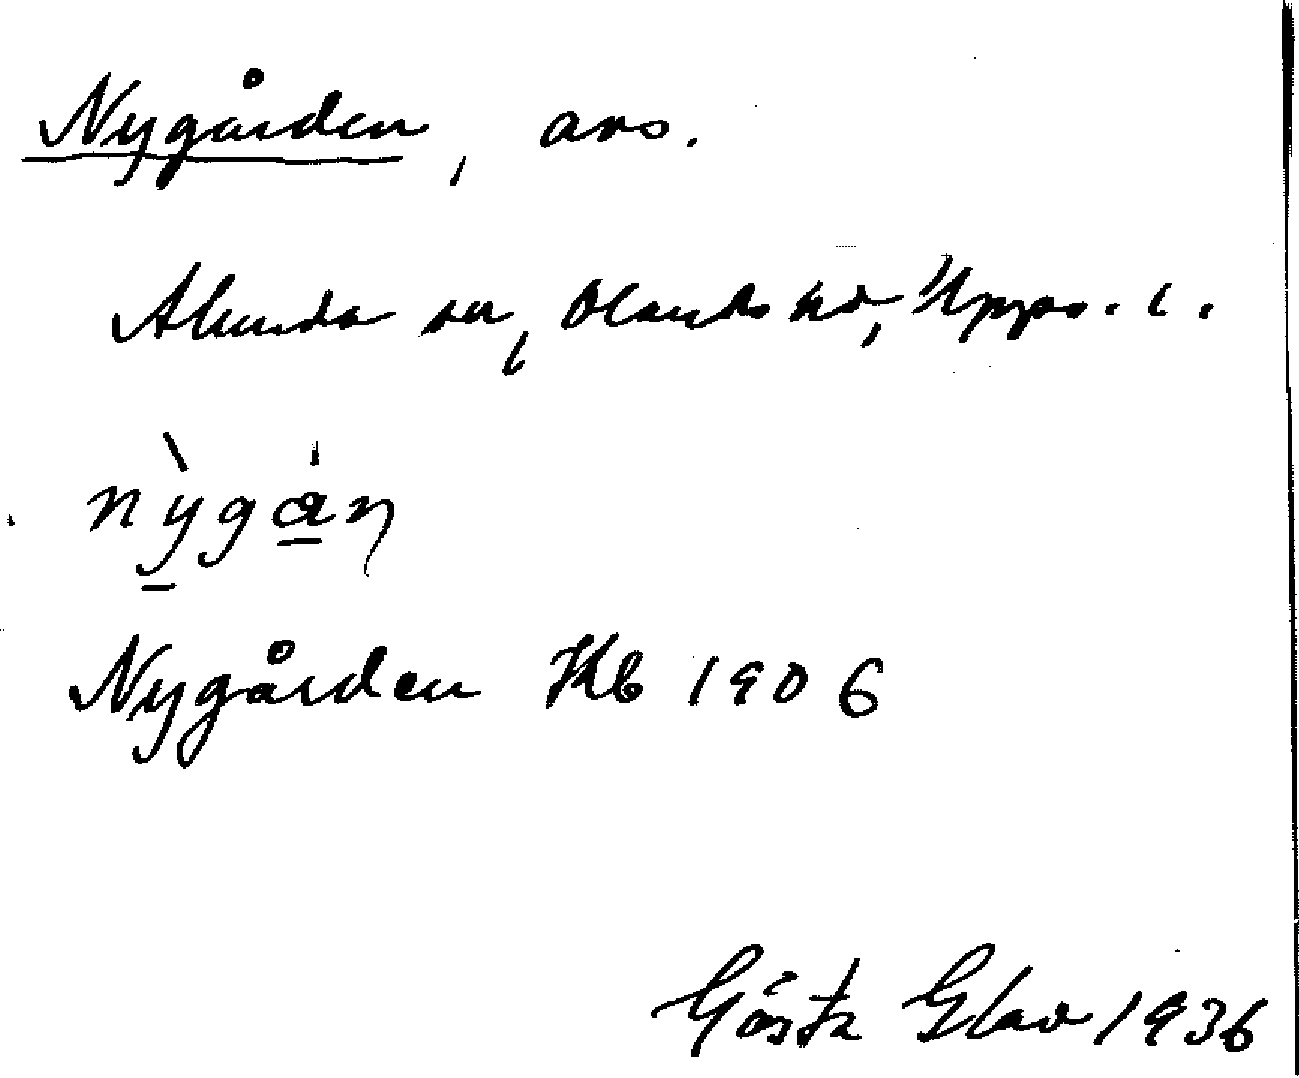 Nygården, avs.
Alunda sn, Olands hd, Upps. l.
nỳgån
Nygården Kb 1906
Gösta Glad 1936